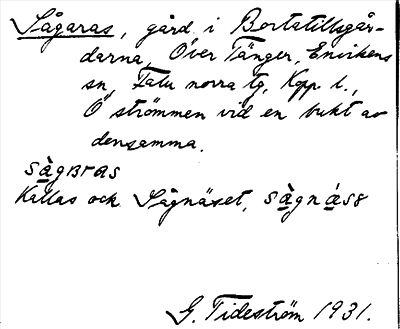 Sågaras, gård i Bortatillsgår-
darna, Över Tänger, Envikens
sn, Falu norra tg, Kopp l.,
Ö strömmen vid en bukt av
densamma.
sàgʙras
Kallas och Sågnäset, sàgnás8
G. Tideström 1931.